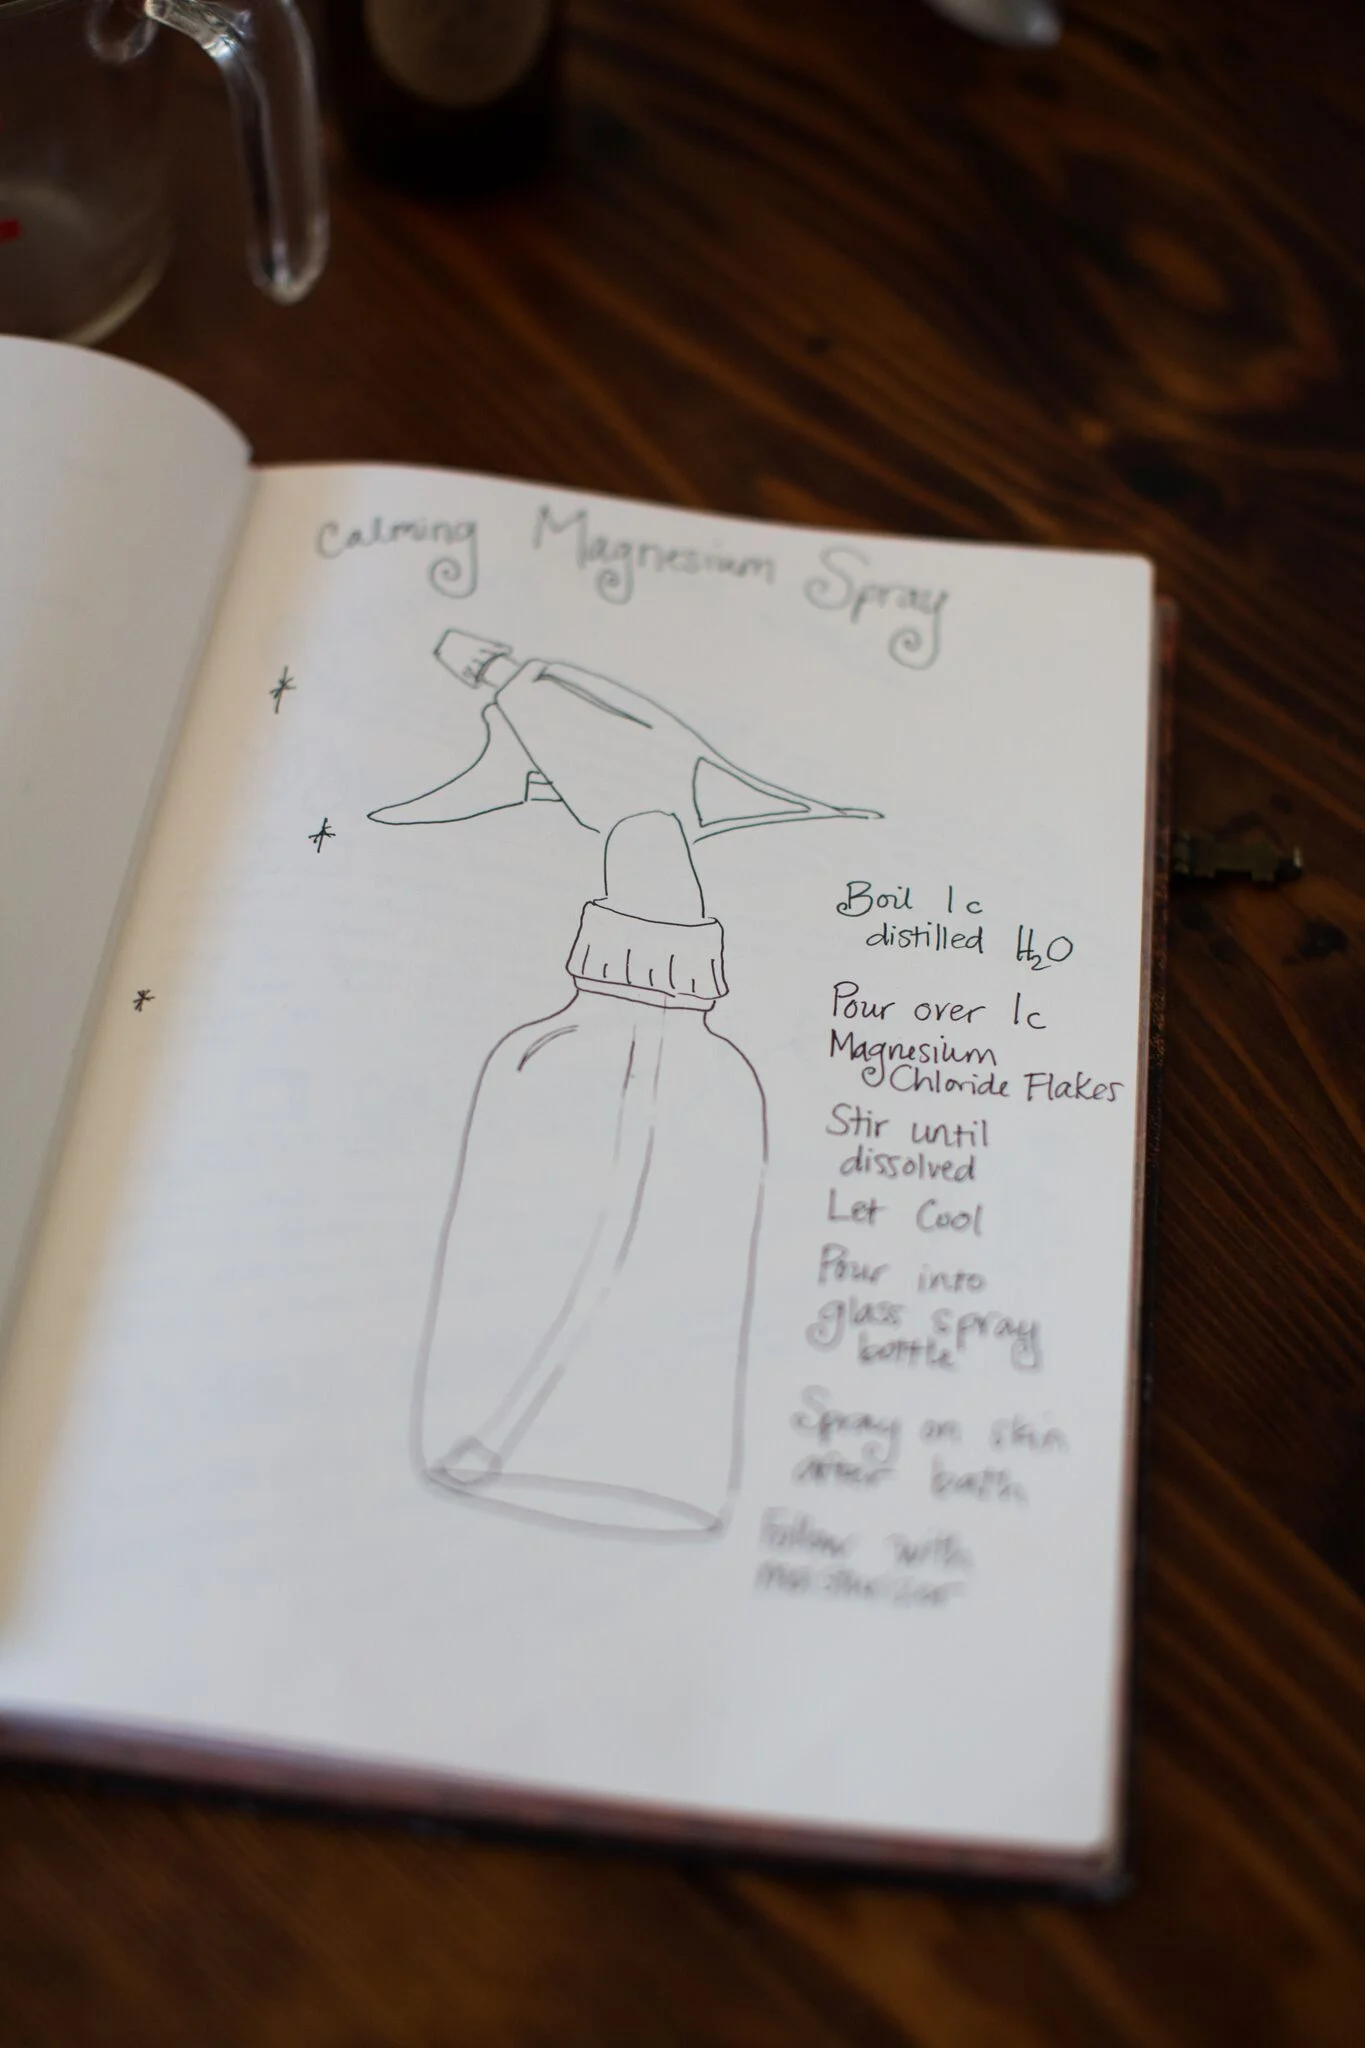 Calming Magnesium Spray
*
*
*
Boil 1c
distilled H₂O
Pour over 1c
Magnesium
Chloride Flakes
Stir until
dissolved
Let Cool
Pour into
glass spray
bottle
Spray on skin
after bath
Follow with
moisturizer